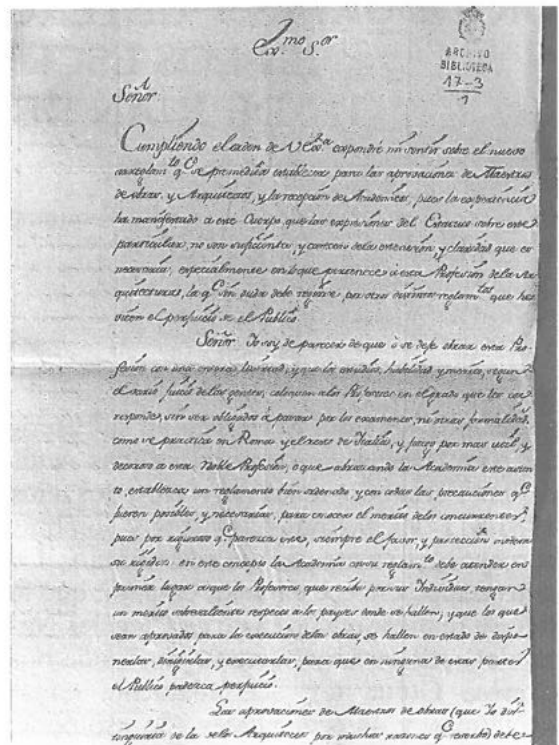 Exc.mo S.or
ARCHIVO
BIBLIOTECA
17-3
1
Señor
Cumpliendo el orden de V Exc.a expondré mi sentir sobre el nuevo
arreglam.to q.e se premedita establecer para las aprovaciones de Maestros
de obras, y Arquitectos, y la recepción de Académicos, pues la experiencia
ha manifestado a este Cuerpo, que las expresiones del Estatuto sobre este
particular, no son suficientes, y carecen de la extensión, y claridad que es
necesaria, especialmente en lo que pertenece a esta Profesión de la Ar-
quitectura, la q.e sin duda debe regirse por otros distintos reglam.tos que
el perjuicio de el Publico.
Señor. Yo soy de parecer de que ò se deje obrar esta Pro-
fesión con una entera livertad, y que los estudios, habilidad y merito, segun
el vario juicio de las gentes, coloquen a los Profesores en el grado que les cor-
responde, sin ser obligados à pasar por los examenes, ni otras formalidad.s
como se practica en Roma y el resto de Italia, y juzgo por mas util, y
decoroso a esta Noble Profesión, ò que abrazando la Academia este asun-
to, establezca un reglamento bien ordenado, y con todas las precauciones q.e
fueren posibles, y necesarias, para conocer el merito de los concurrentes,
pues por riguroso q.e parezca este, siempre el favor, y protección modera
su rigidez: en este concepto la Academia en su reglam.to debe atender en
primer lugar a que los Profesores, que reciba para sus Individuos, tengan
un merito sobresaliente respecto a los payses donde se hallen, y que los que
sean aprovados para la execución de las obras, se hallen en estado de
dirigirlas, y executarlas, para que en ninguna de estas partes
el Publico padezca perjuicio.
Las aprovaciones de Maestros de obras (que Yo dis-
tinguiria de la de los Arquitectos por muchas razones q.e reservo) debe